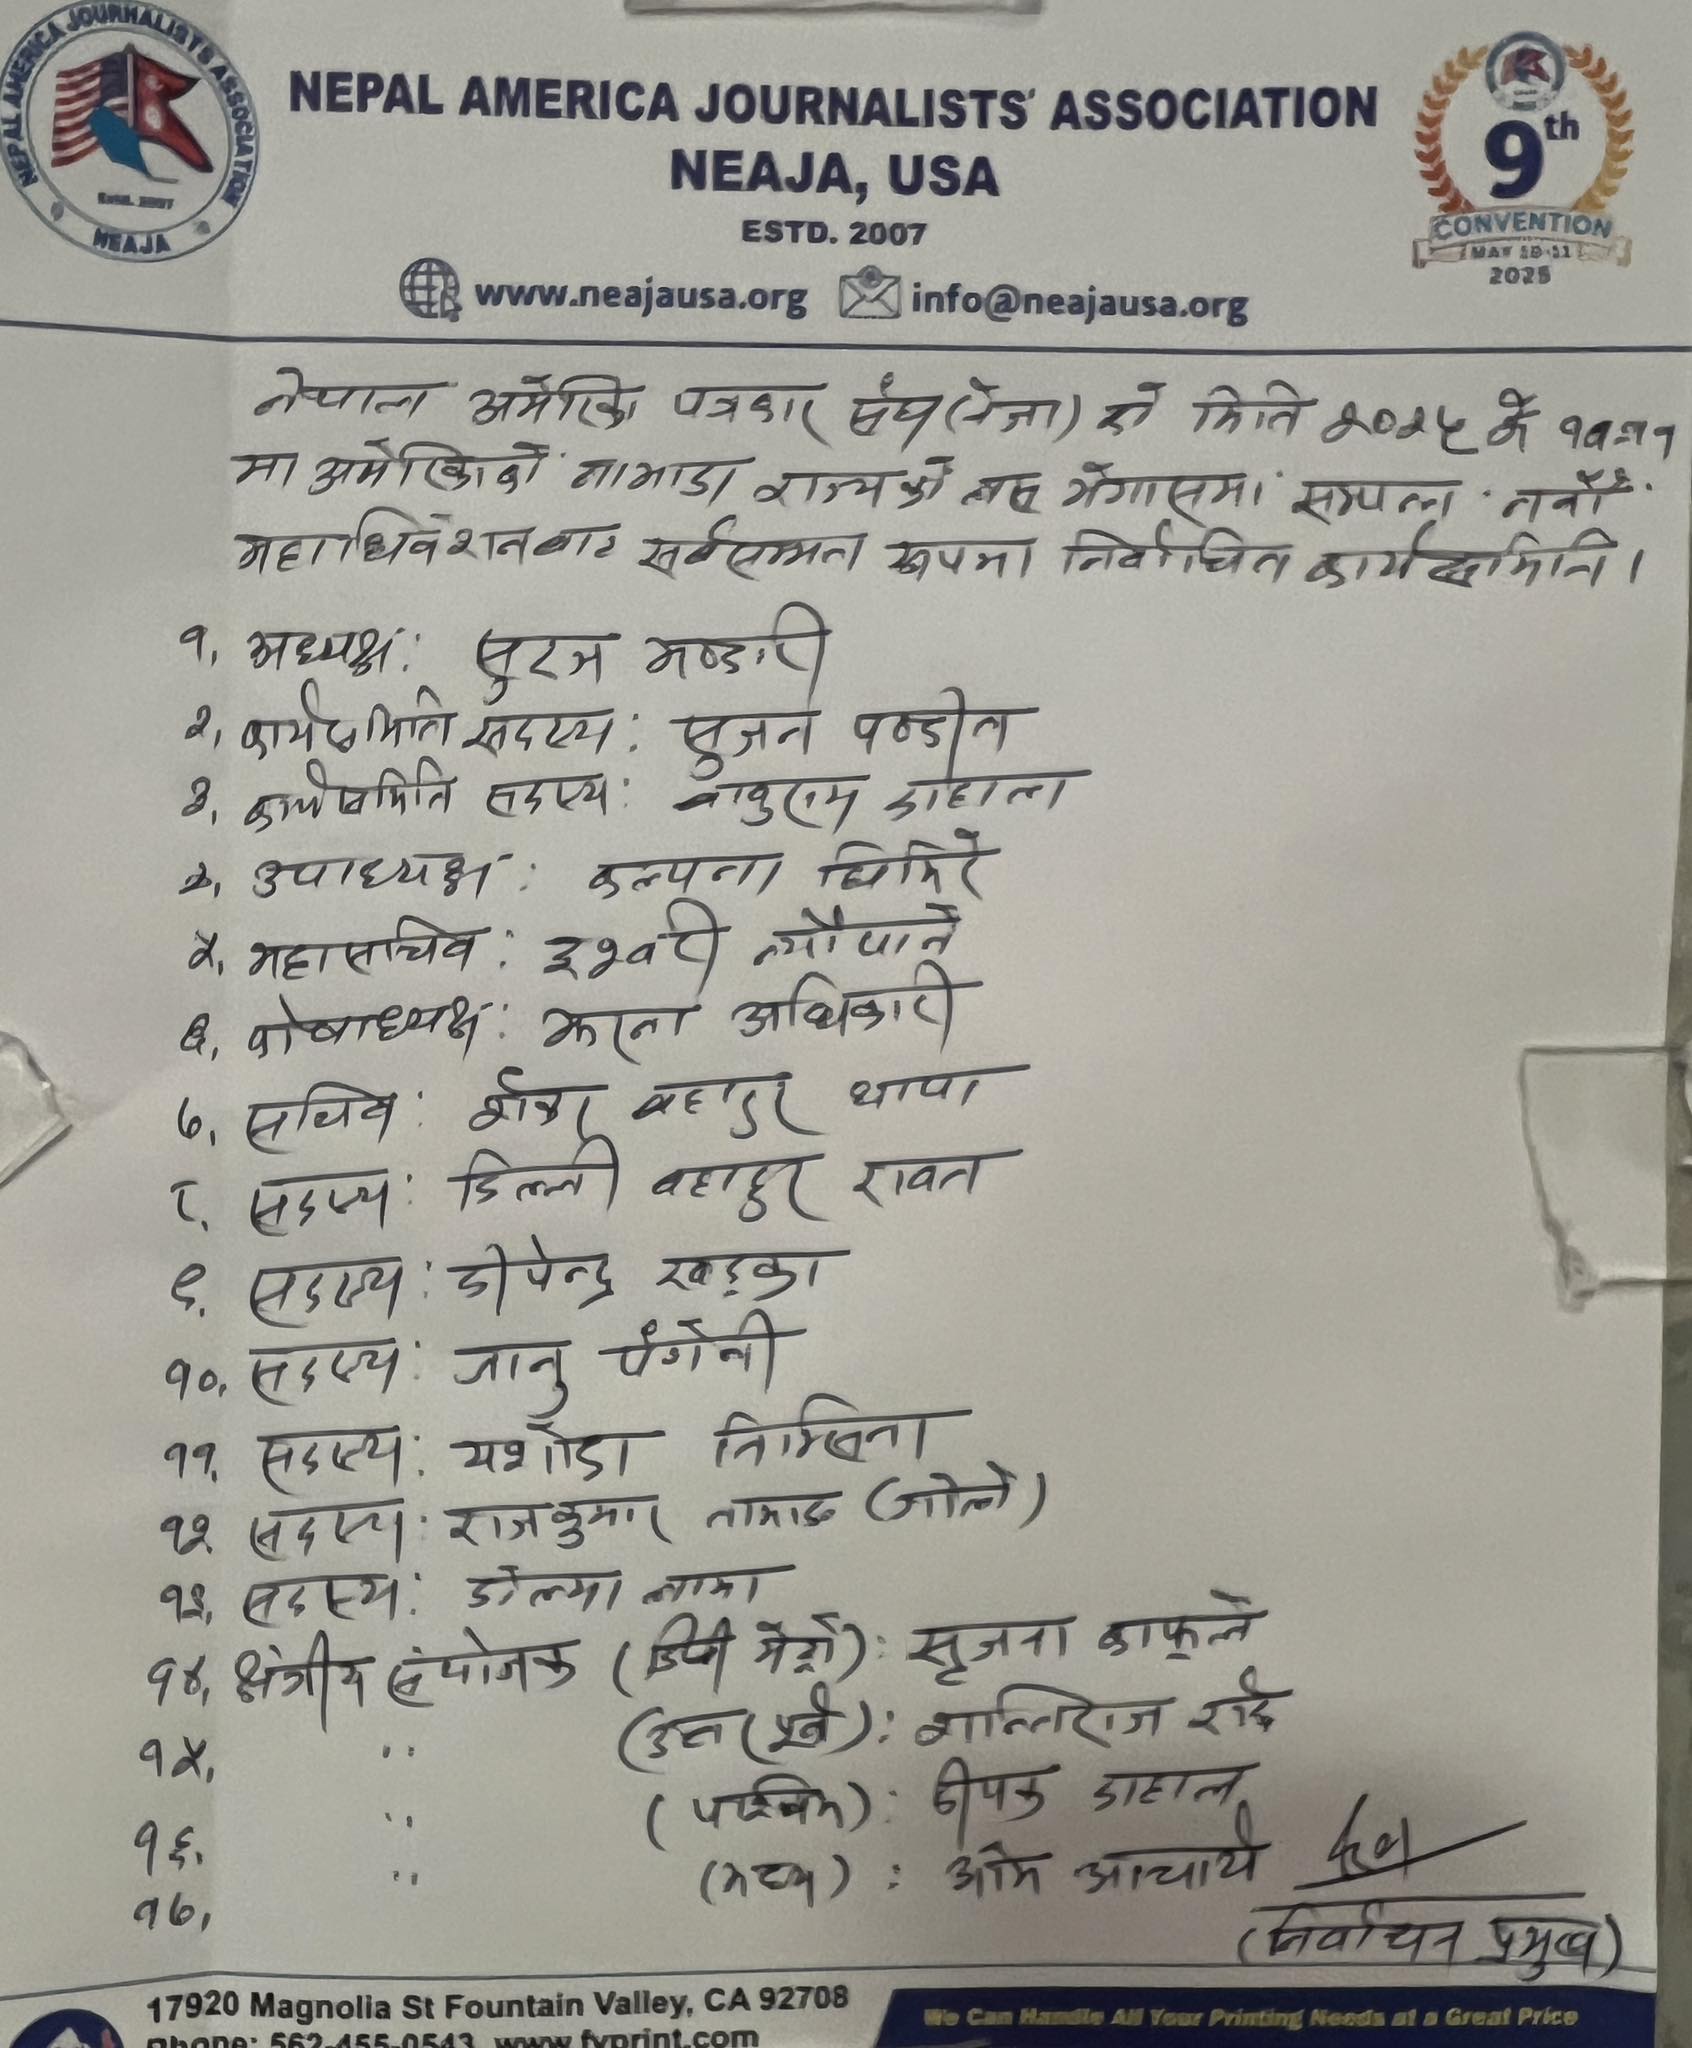 NEPAL AMERICA JOURNALISTS ASSOCIATION
NEAJA
NEPAL AMERICA JOURNALISTS' ASSOCIATION
NEAJA, USA
ESTD. 2007
www.neajausa.org info@neajausa.org
9th
CONVENTION
MAY 10-11
2025
नेपाल अमेरिका पत्रकार संघ (नेजा) को मिति २०२५ मे १०-११
मा अमेरिकाको नाभाडा राज्यको लस भेगासमा सम्पन्न नवौँ
महाधिवेशनबाट सर्वसम्मत रूपमा निर्वाचित कार्यसमिति।
१. अध्यक्ष: सुरज भण्डारी
२. कार्यसमिति सदस्य: सुजन पण्डीत
३. कार्यसमिति सदस्य: बाबुराम दाहाल
४. उपाध्यक्ष: कल्पना घिमिरे
५. महासचिव: ईश्वरी न्यौपाने
६. कोषाध्यक्ष: झरना अधिकारी
७. सचिव: शंकर बहादुर थापा
८. सदस्य: डिल्ली बहादुर रावत
९. सदस्य: दीपेन्द्र खड्का
१०. सदस्य: जानु पंगेनी
११. सदस्य: यशोदा तिम्सिना
१२. सदस्य: राजकुमार तामाङ (गोले)
१३. सदस्य: डोल्मा लामा
१४. क्षेत्रीय संयोजक (डिसी मेट्रो): सृजना काफ्ले
१५. " (उत्तर पूर्व): शान्तिराज
१६. " (पश्चिम): दीपक दाहाल
१७. " (मध्य): ओम आचार्य
(निर्वाचन प्रमुख)
17920 Magnolia St Fountain Valley, CA 92708
Phone: 562-455-0543 www.fvprint.com
We Can Handle All Your Printing Needs at a Great Price